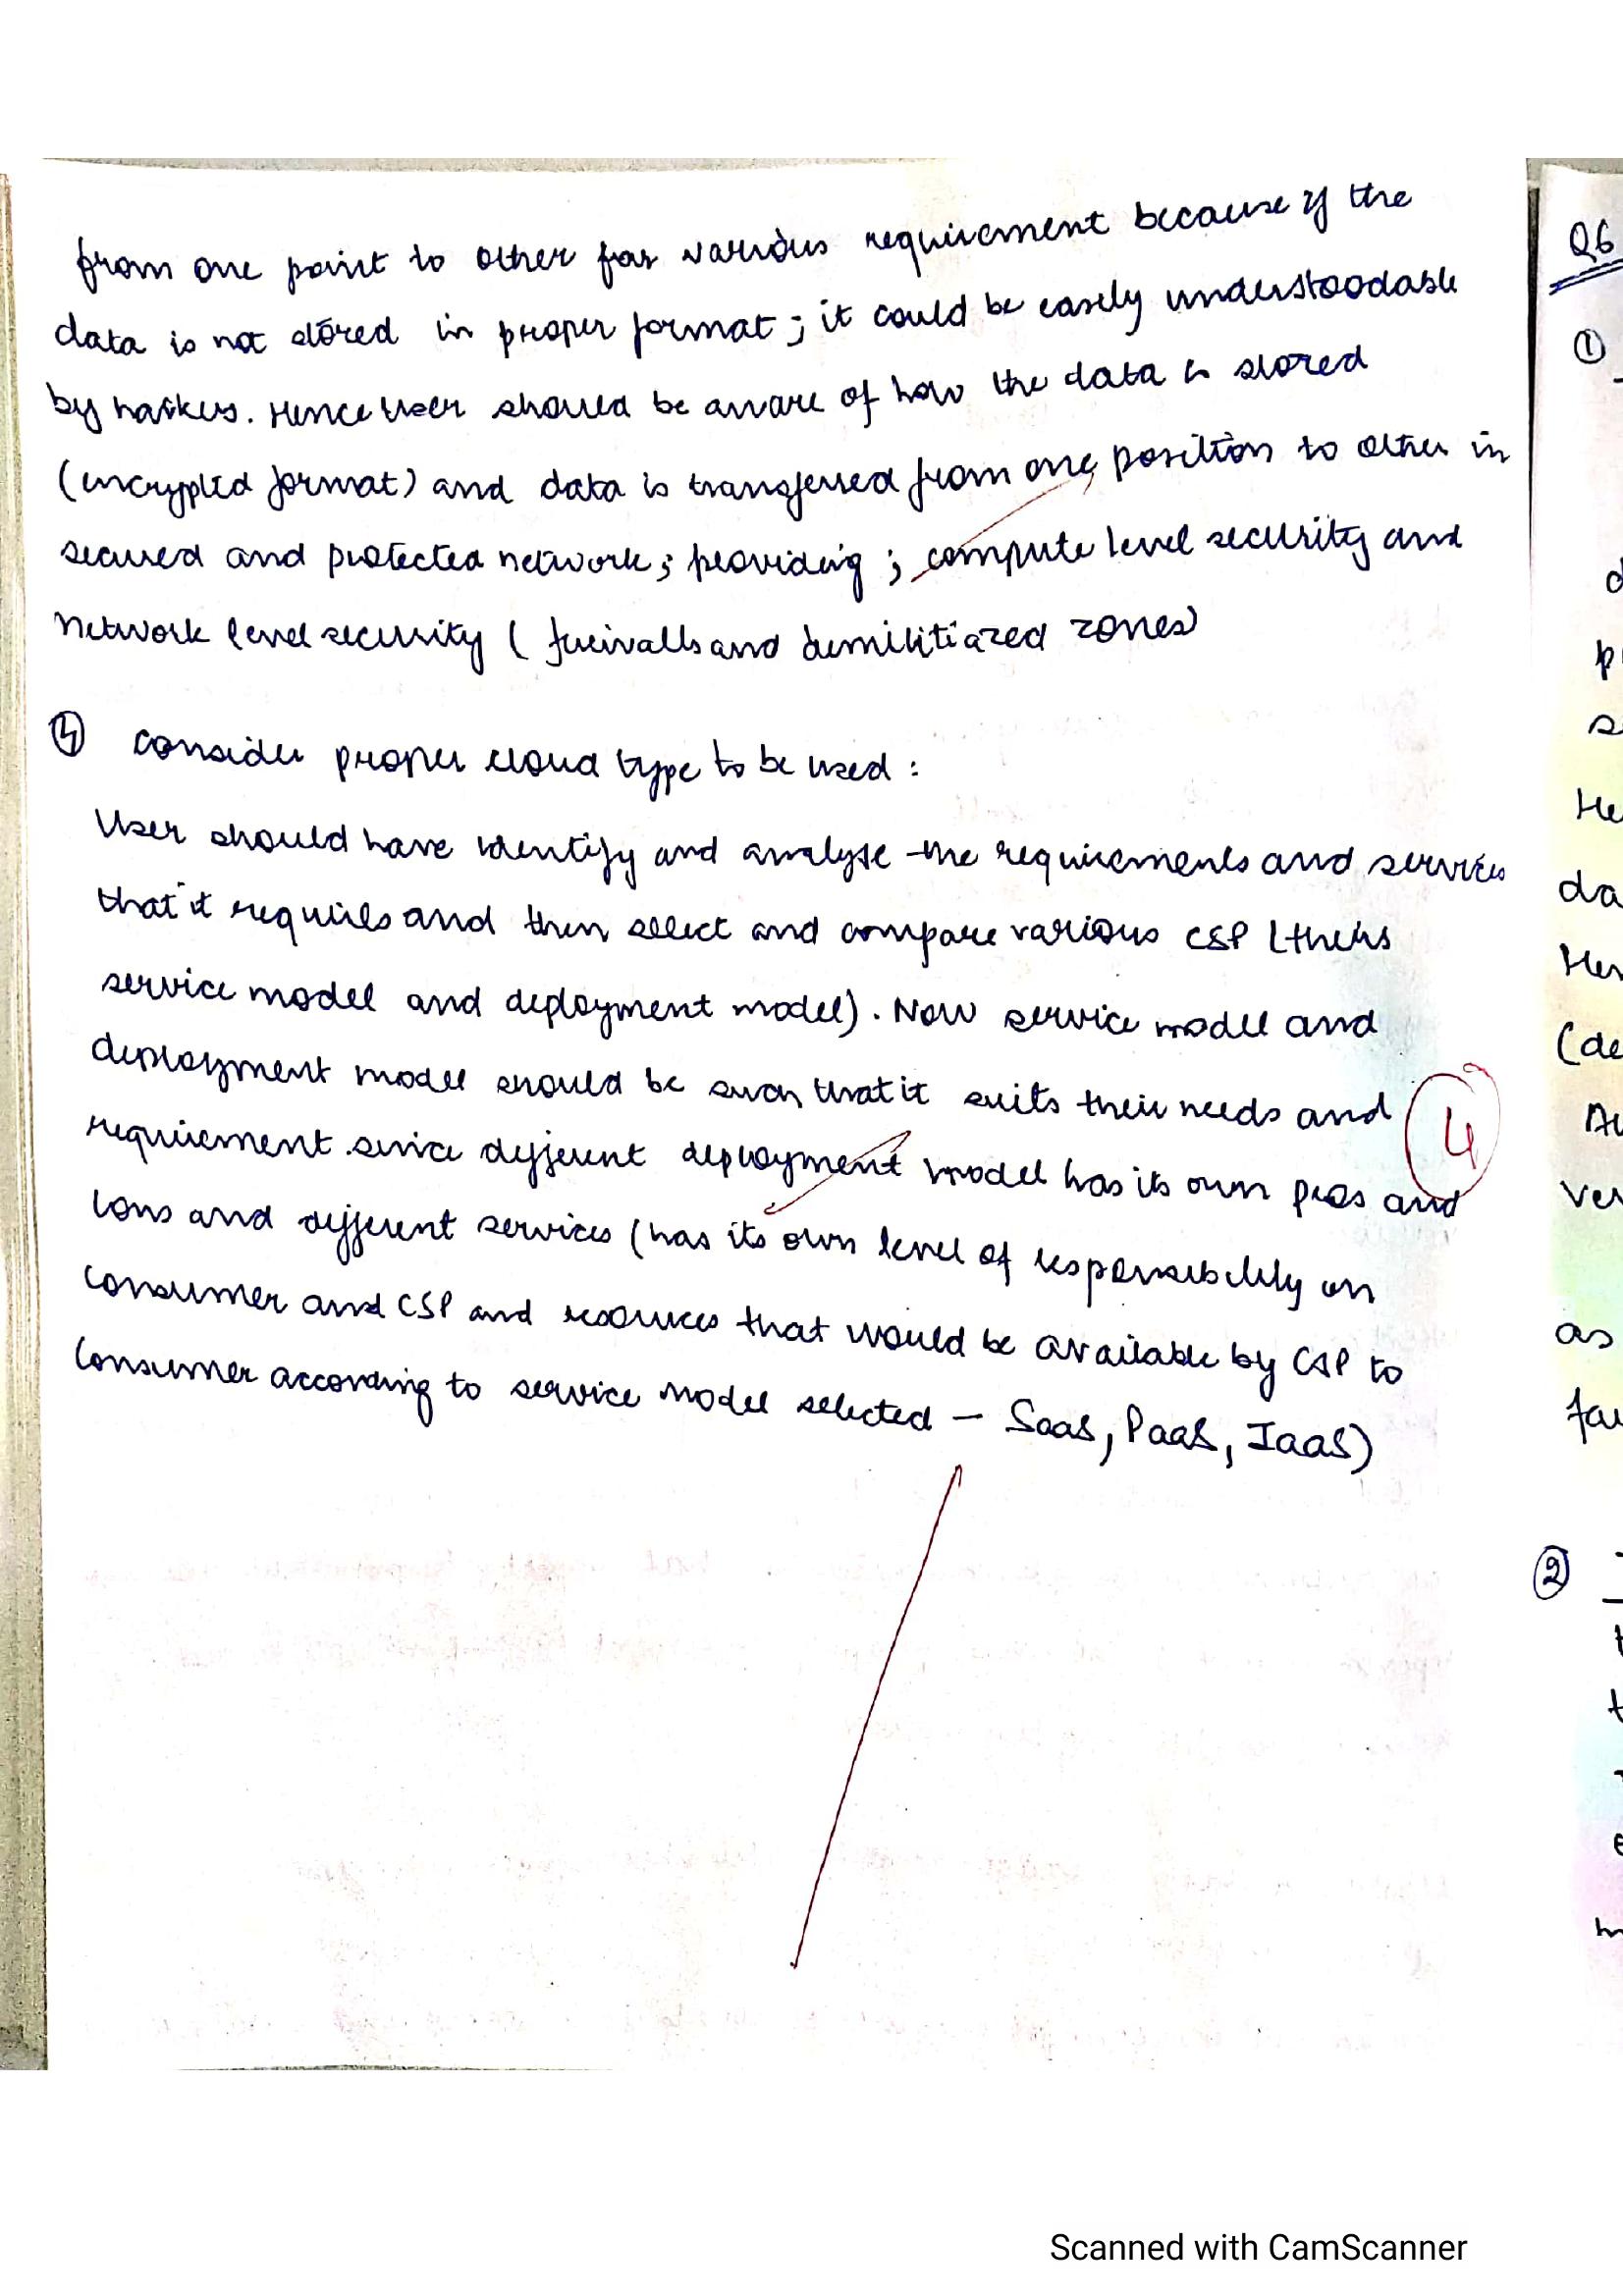 from one point to other for various requirement because if the
data is not stored in proper format; it could be easely understoodable
by hackers. Hence user should be aware of how the data is stored
(encrypted format) and data is transferred from one position to other in
secured and protected network; providing; compute level security and
Network level security ( firewalls and demilitiazed zones)
④ Consider proper cloud type to be used :
User should have identify and analyse the requirements and services
that it requires and then select and compare various CSP (theirs
service model and deployment model). Now service model and
deployment model should be such that it suits their needs and
4
requirement since different deployment model has its own pros and
cons and different services (has its own level of responsibility on
consumer and CSP and resources that would be available by CSP to
Consumer according to service model selected – SaaS, PaaS, IaaS)
Q6
①
da
(de
as
②
Scanned with CamScanner